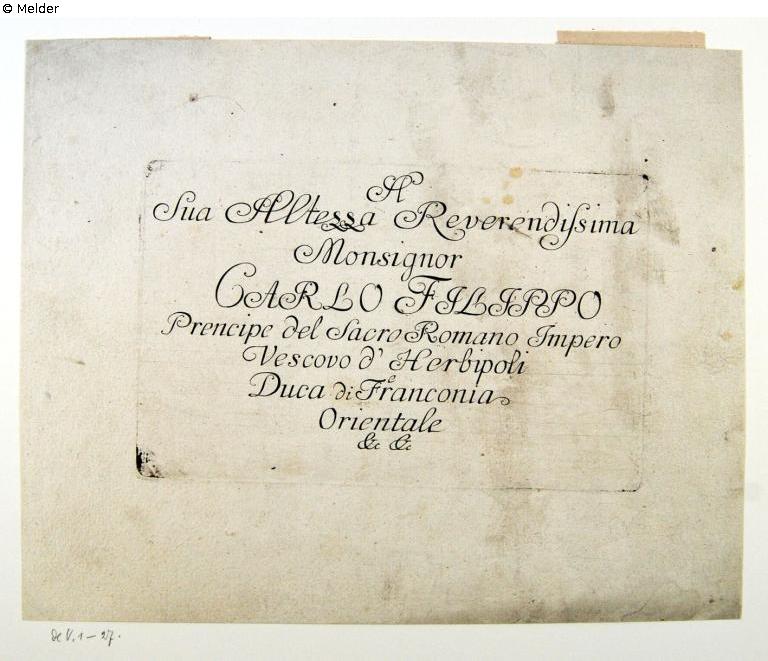 © Melder
A
Sua Altessa Reverendissima
Monsignor
CARLO FILIPPO
Prencipe del Sacro Romano Impero
Vescovo d' Herbipoli
e
Duca di Franconia
Orientale
&c &c
De V. 1-27.